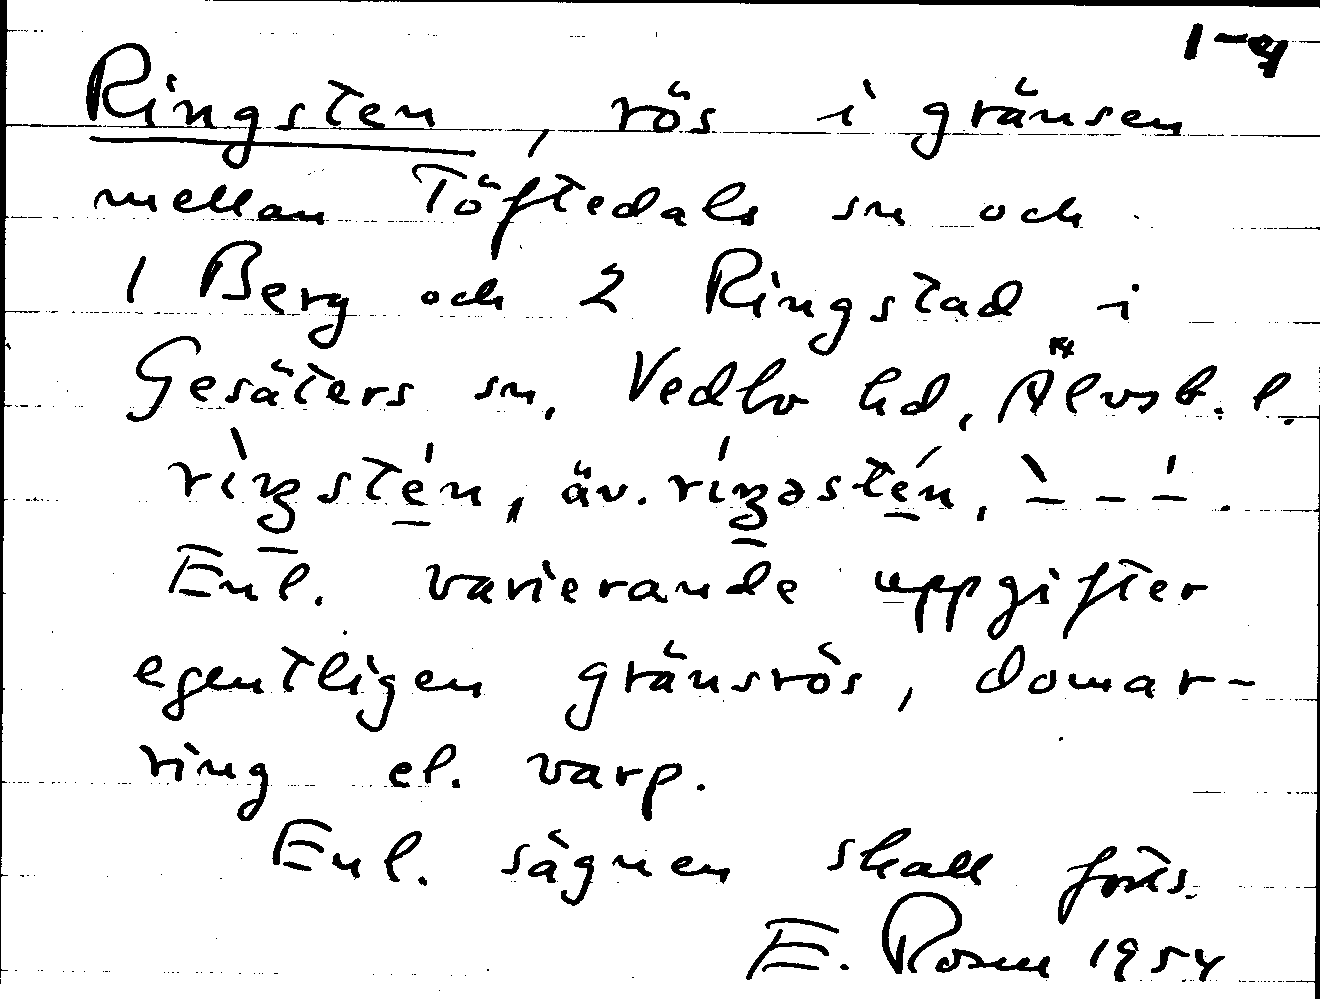 1-4
Ringsten, rös i gränsen
mellan Töftedals sn och
1 Berg och 2 Ringstad i
Gesäters sn, Vedbo hd, Älvsb. l.
rìŋstén, äv. ríŋəstén, ` – – ´.
Enl. varierande uppgifter
egentligen gränsrös, domar-
ring el. varp.
Enl. sägnen skall forts.
E. Rosen 1954